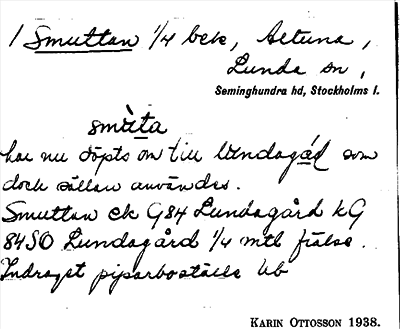 1 Smuttan 1/4 bek, Altuna,
Lunda sn,
Seminghundra hd, Stockholms l.
smùta
har nu döpts om till Lundagǻd som
dock sällan användes.
Smuttan ek G84 Lundagård kG
84SO Lundagård 1/4 mtl frälse.
Indraget piparboställe Ub
KARIN OTTOSSON 1938.